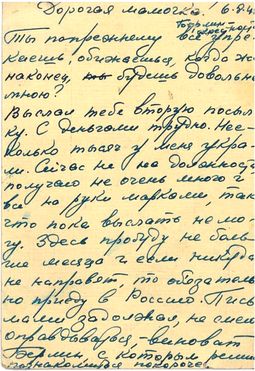 Дорогая мамочка!
Ты попрежнему все упре-
каешь, обижаешься, когда ж
наконец, ты будешь довольна
мною?
Выслал тебе вторую посыл
ку. С деньгами трудно. Нес-
колько тысяч у меня украли
. Сейчас не на должность
получаю не очень много и
все на руки марками, так
что пока выслать не мо-
гу. Здесь пробуду не боль
ше месяца и если никуда
не направят, то обязатель
но приеду в Россию. Пись
мами задолжал, не смею
оправдываться, виноват
Берлин с которым решил
познакомиться покороче